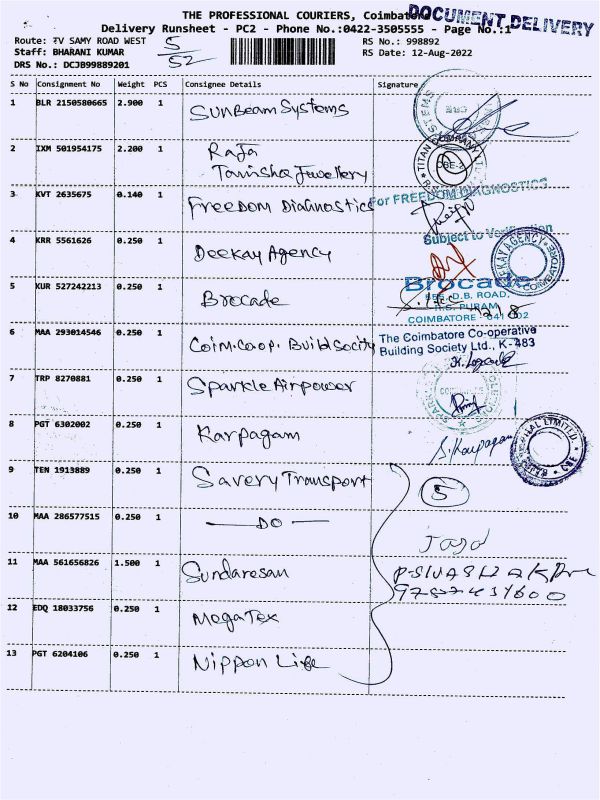 THE PROFESSIONAL COURIERS, Coimbatore
DOCUMENT DELIVERY
Delivery Runsheet - PC2 - Phone No.:0422-3505555 - Page No.:1
Route: TV SAMY ROAD WEST 5/52 RS No.: 998892
Staff: BHARANI KUMAR RS Date: 12-Aug-2022
DRS No.: DCJB99889201
S No Consignment No Weight PCS Consignee Details Signature
1 BLR 2150580665 2.900 1 SunBeam Systems
2 IXM 501954175 2.200 1 Raja
Tanishq Jewellery
TITAN COMPANY
3 KVT 2635675 0.140 1 Freedom Diahnostics
For FREEDOM DIAGNOSTICS
Subject to Verification
4 KRR 5561626 0.250 1 Deekay Agency
DEEKAY AGENCY COIMBATORE
5 KUR 527242213 0.250 1 Brocade
Brocade
D.B. ROAD,
R.S. PURAM
COIMBATORE - 641 002
6 MAA 293014546 0.250 1 Coim.Coop. Build Socity
The Coimbatore Co-operative
Building Society Ltd., K-483
7 TRP 8270881 0.250 1 Sparkle Airpower
8 PGT 6302002 0.250 1 Karpagam
S. Karpagam
9 TEN 1913889 0.250 1 Savery Transport
5
10 MAA 286577515 0.250 1 — DO —
11 MAA 561656826 1.500 1 Sundaresan
12 EDQ 18033756 0.250 1 MegaTex
13 PGT 6204106 0.250 1 Nippon Life